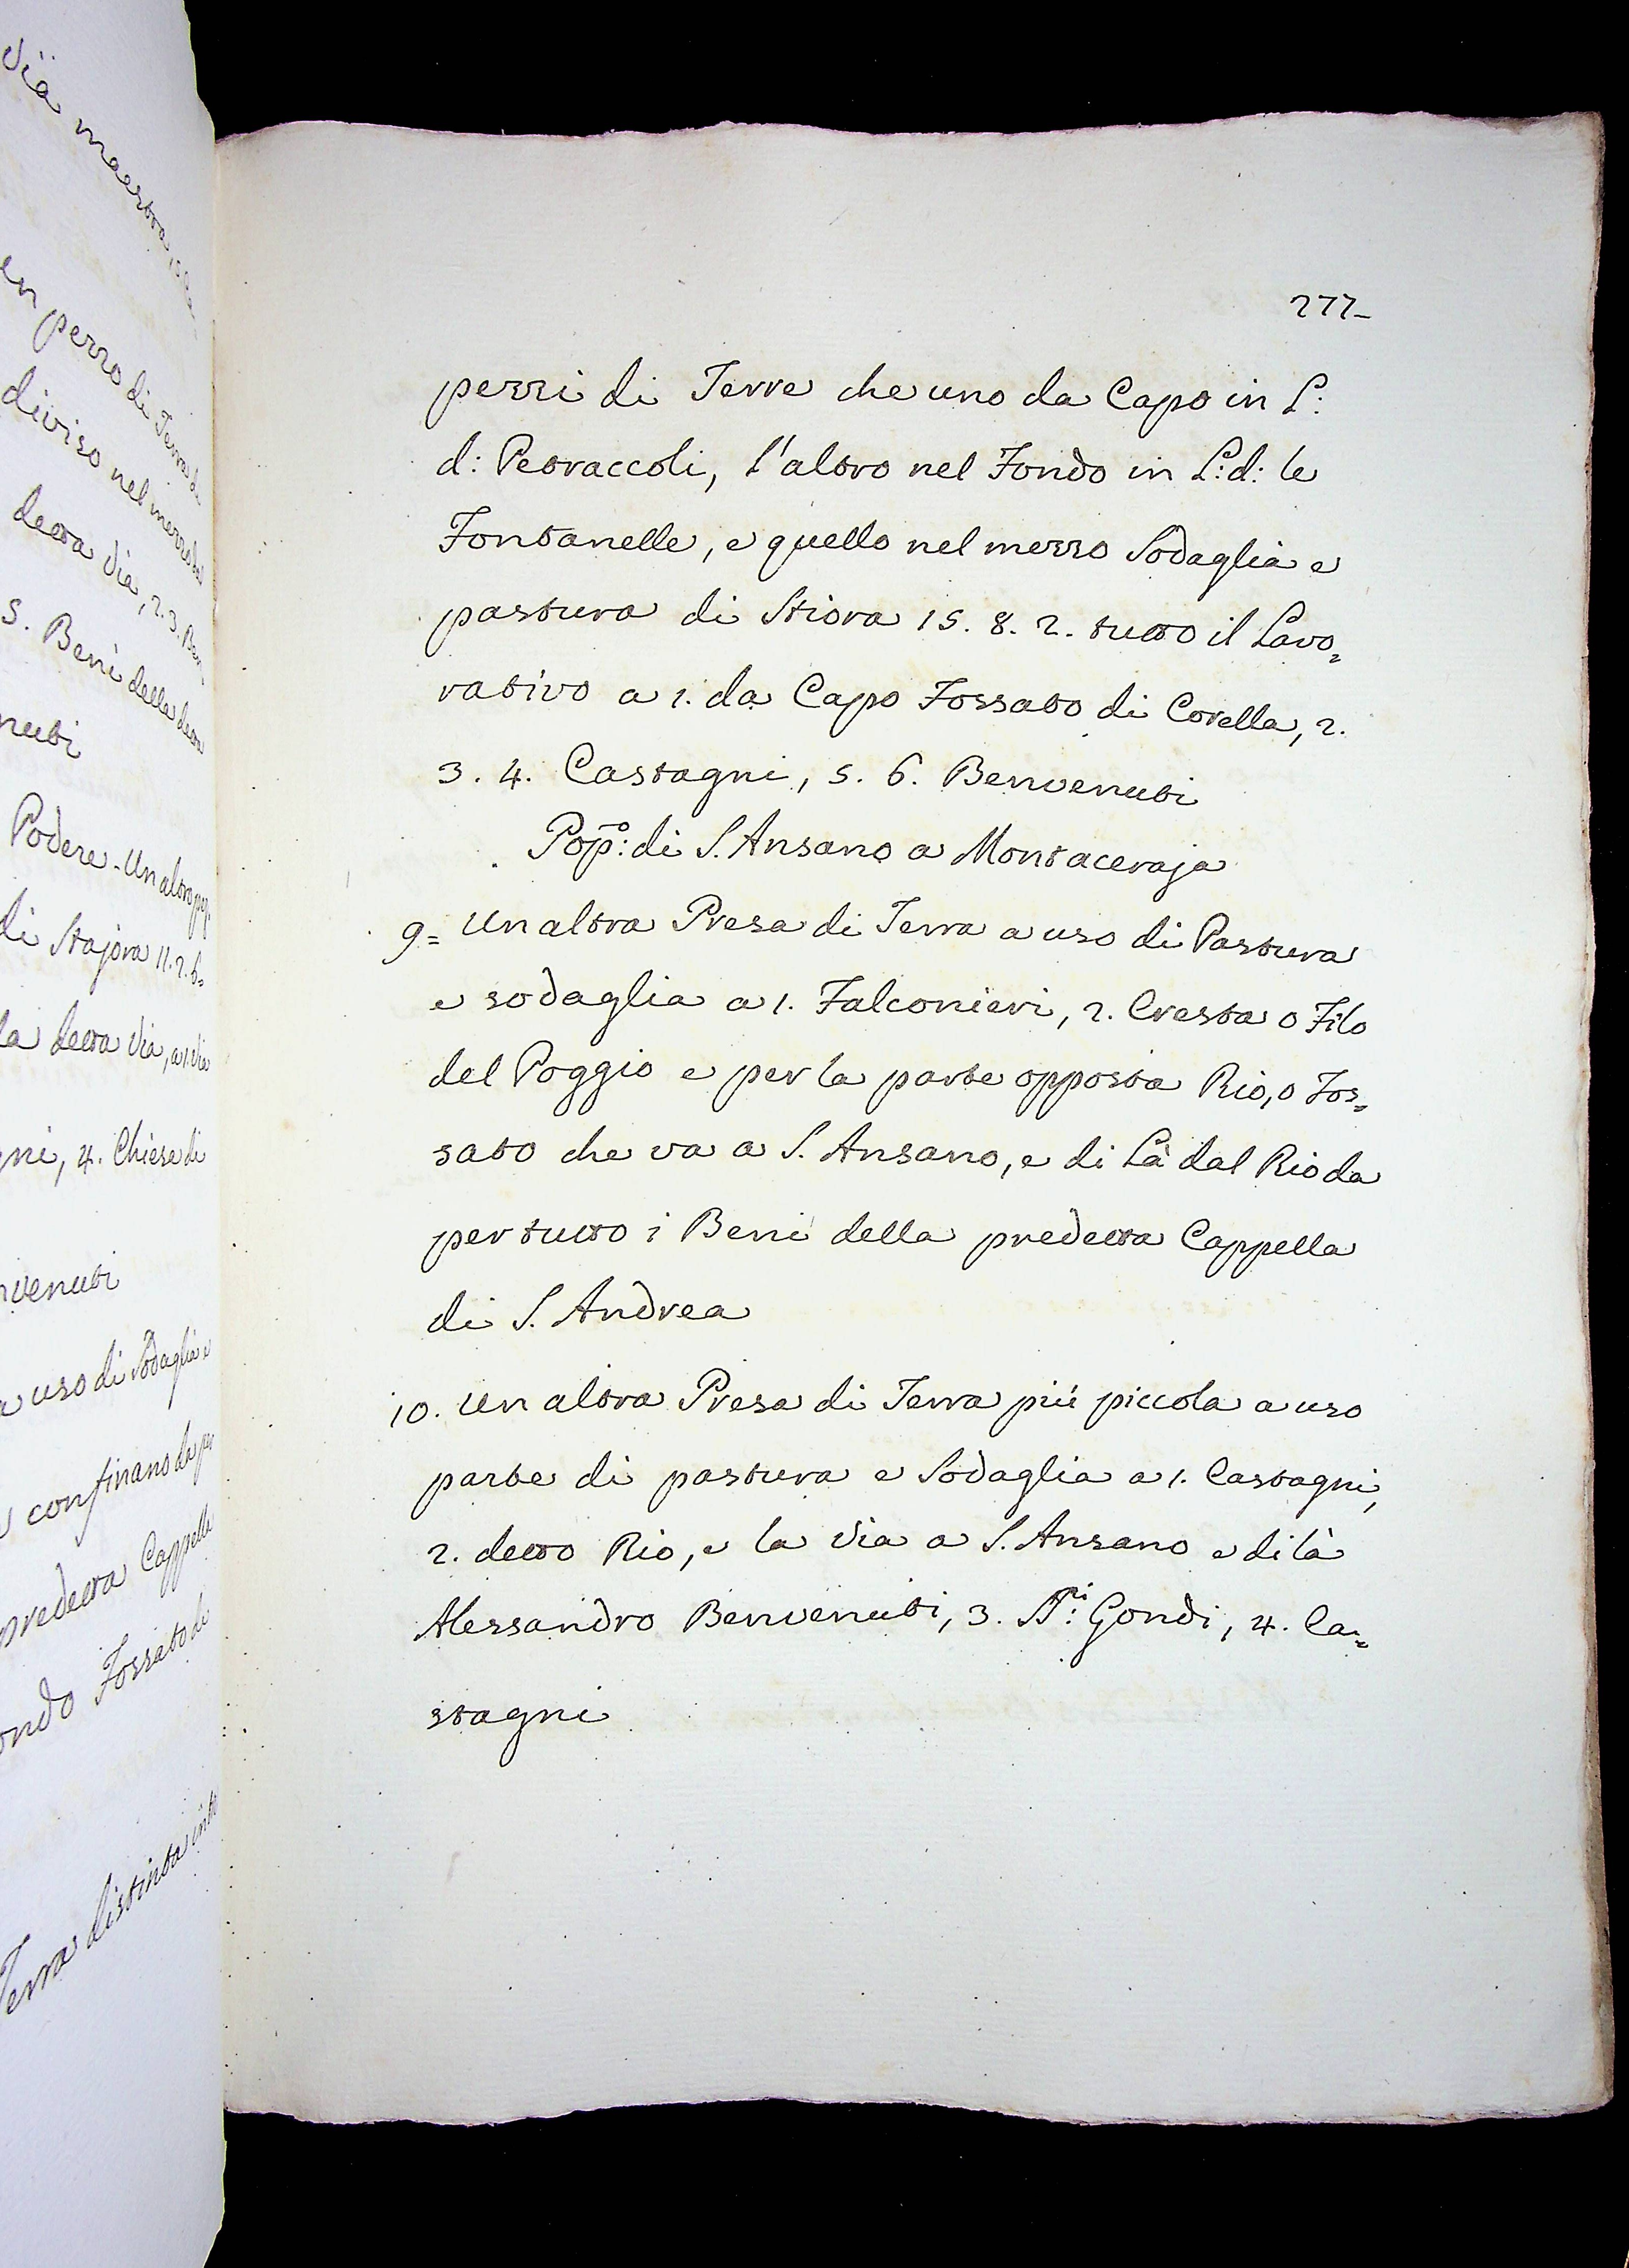 277_
pezzi di Terre che uno da Capo in L:
d: Petraccoli, l'altro nel Fondo in L:d: le
Fontanelle, e quello nel mezzo Sodaglia e
pastura di Stiora 15. 8. 2. tutto il Lavo=
rativo a 1. da Capo Fossato di Corella, 2.
3. 4. Castagni, 5. 6. Benvenuti
Pop:o di S. Ansano a Montaceraja
9= Un altra Presa di Terra a uso di Pastura
e sodaglia a 1. Falconieri, 2. Cresta o Filo
del Poggio e per la parte opposta Rio, o Fos=
sato che va a S. Ansano, e di Là dal Rio da
per tutto i Beni della predetta Cappella
di S. Andrea
10. Un altra Presa di Terra più piccola a uso
parte di pastura e Sodaglia a 1. Castagni,
2. detto Rio, e la Via a S. Ansano e di là
Alessandro Benvenuti, 3. SS:ri Gondi, 4. Ca=
stagni
Via maestra,
un pezzo di Terra di
diviso nel mezzo da
detta Via, 2. 3. Ben
5. Beni della detta
nuti
Podere - Un altro pez.
di Stajora 11. 2. 6=
la detta Via, a 1. Via
gni, 4. Chiesa di
nvenuti
a uso di Sodaglia e
e confinano da per
predetta Cappella
ondo Fossato di
Terra distinta in